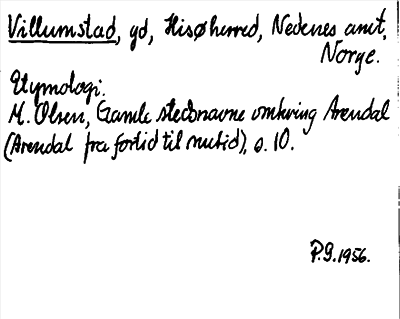 Villumstad, gd, Hisø herred, Nedenes amt,
Norge.
Etymologi.
M. Olsen, Gamle stedsnavne omkring Arendal
(Arendal fra fortid til nutid), s. 10.
P.G. 1956.